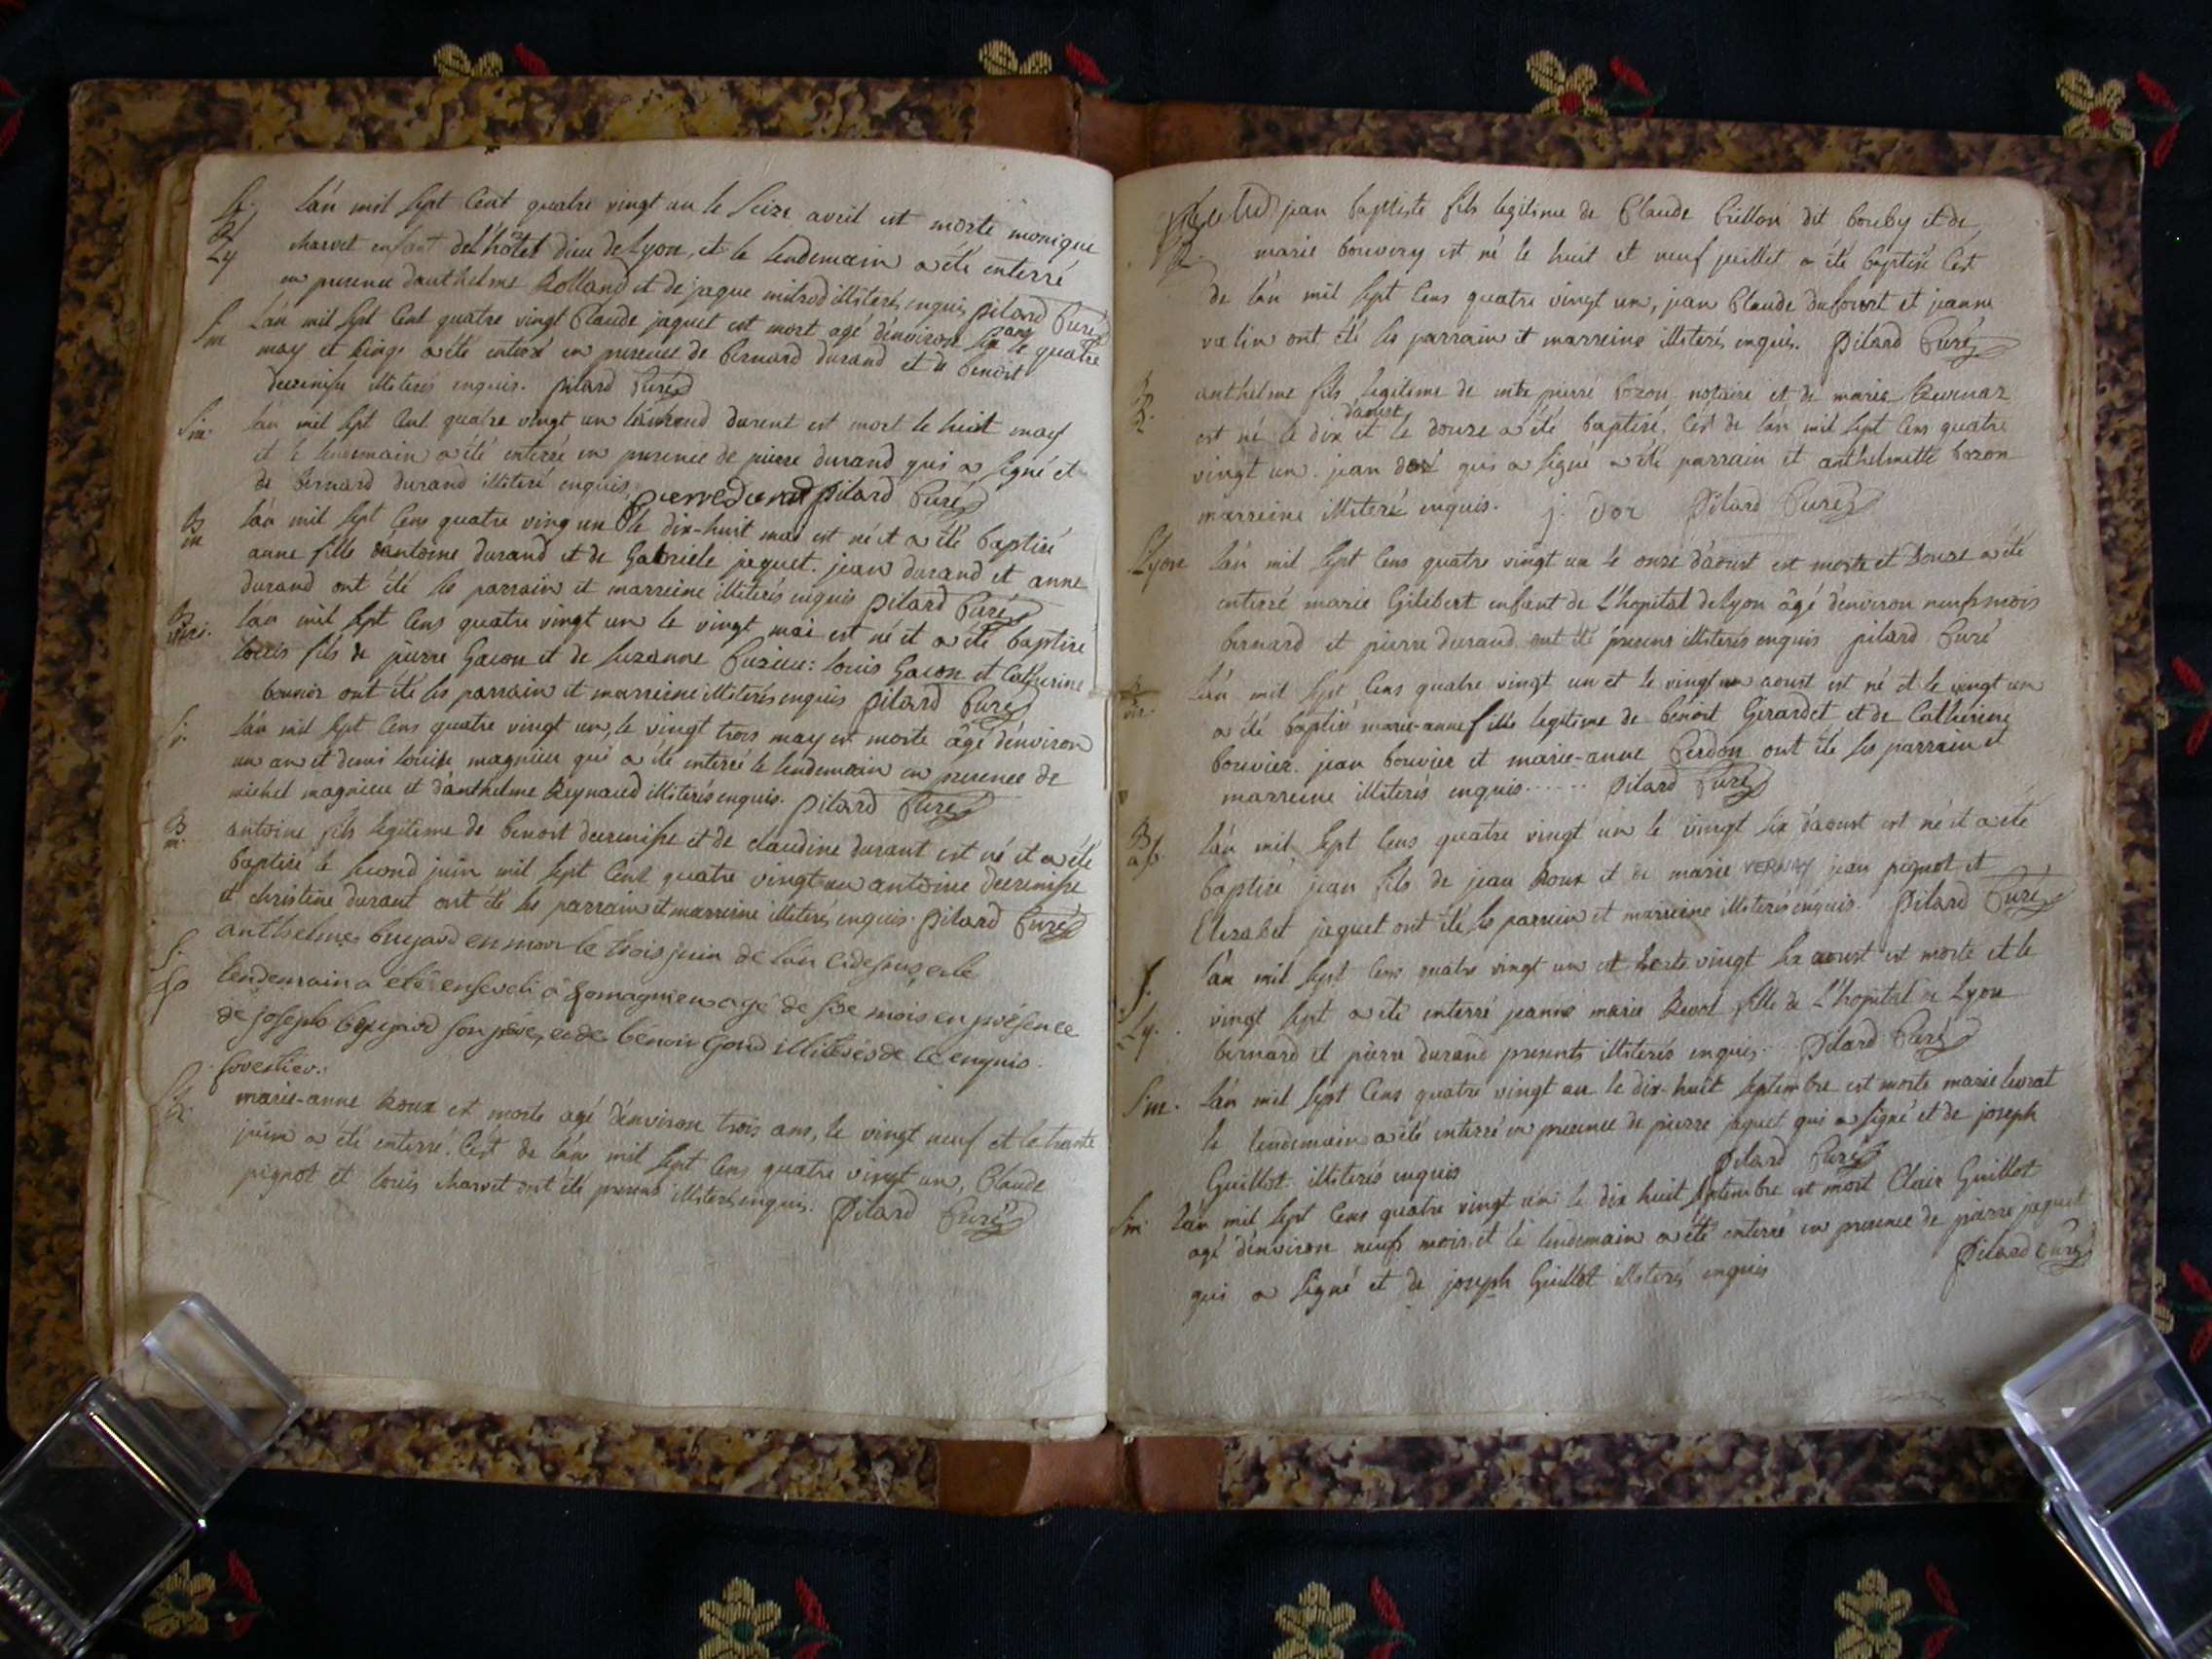 S. L'án mil sept cent quatre vingt un le seize avril est morte monique
Ly charvet enfant de l'hôtel dieu de Lyon, et le lendemain a été enterré
en presence danthelme Rolland et de jaque mitrod illiterés enquis pilard Curé
S. m L'án mil sept cent quatre vingt Claude jaquet est mort agé d'environ six ans le quatre
may et cinq a été enterré en presence de bernard durand et de benoit
decrenisse illiterés enquis. pilard Curé
S. m. L'án mil sept cent quatre vingt un durent est mort le huit may
et le lendemain a été enterré en presence de pierre durand qui a signé et
de bernard durand illiteré enquis, pierre Durand pilard Curé
B m L'án mil sept cens quatre ving un le dix-huit mai est né et a été baptisé
anne fille d'antoine durand et de Gabriele jaquet. jean durand et anne
durand ont été les parrain et marreine illiterés enquis pilard Curé
B viri. L'án mil sept cens quatre vingt un le vingt mai est né et a été baptisé
louis fils de pierre Gacon et de suzanne Cuzieu: louis Gacon et Catherine
bouvier ont été les parrain et marreine illiterés enquis pilard Curé
S. L'án mil sept cens quatre vingt un, le vingt trois may est morte âgé d'environ
un an et demi louise magnieu qui a été enterré le lendemain en presence de
michel magnieu et d'anthelme Reynaud illiterés enquis. pilard Curé
B m. antoine fils legitime de benoit decrenisse et de claudine durant est né et a été
baptisé le second juin mil sept cent quatre vingt un antoine decrenisse
et christine durant ont été les parrain et marreine illiterés enquis. pilard Curé
S. anthelme bugard en mort le trois juin de lan cidessus et le
lendemain a eté enseveli a Lomagnieu agé de six mois en présence
de joseph bugard son père, et de bénoit Gond illiterés de ce enquis.
S. R. marie-anne Roux est morte agé d'environ trois ans, le vingt neuf et le trante
juin a été enterré. C'est de l'án mil sept cens quatre vingt un, Claude
pignot et louis charvet ont été presens illiterés enquis. Pilard Curé
jean baptiste fils legitime de Claude Crillon dit bouby et de
marie bouvery est né le huit et neuf juillet a été baptisé C'est
de l'án mil sept cens quatre vingt un, jean Claude dufourt et jeanne
vatin ont été les parrain et marreine illiterés enquis. Pilard Curé
B R. anthelme fils legitime de mtre pierre bozon notaire et de marie Revenaz
est né le dix d'aoust et le douze a été baptisé, C'est de l'án mil sept cens quatre
vingt un. jean dor qui a signé a été parrain et anthelmette bozon
marreine illiteré enquis. j. Dor Pilard Curé
S Lyon L'án mil sept cens quatre vingt un le onze d'aoust est morte et douze a été
enterré marie Gilibert enfant de L'hopital de Lyon âgé d'environ neufs mois
bernard et pierre durand ont été presens illiterés enquis pilard Curé
B vir. L'án mil sept cens quatre vingt un et le vingt aoust est né et le vingt un
a été baptisé marie-anne fille legitime de benoit Gerardet et de Catherine
bouvier. jean bouvier et marie-anne Perdon ont été les parrain et
marreine illiterés enquis...... Pilard Curé
B L'án mil sept cens quatre vingt un le vingt six d'aoust est né et a été
baptisé jean fils de jean Roux et de marie VERNAY jean pignot et
Elizabet jaquet ont été les parrein et marreine illiterés enquis. Pilard Curé
S. L'án mil sept cens quatre vingt un et vingt six aoust est morte et le
Ly. vingt sept a été enterré jeanne marie Revol fille de L'hopital de Lyon
bernard et pierre durand presents illiterés enquis. Pilard Curé
S m. L'án mil sept cens quatre vingt un le dix-huit septembre est morte marie livrat
le lendemain a été enterré en presence de pierre jaquet qui a signé et de joseph
Guillot illiterés enquis Pilard Curé
S m. L'án mil sept cens quatre vingt un le dix huit septembre est mort Clair Guillot
agé d'environ neufs mois et le lendemain a été enterré en presence de pierre jaquet
qui a signé et de joseph Guillot illiterés enquis Pilard Curé